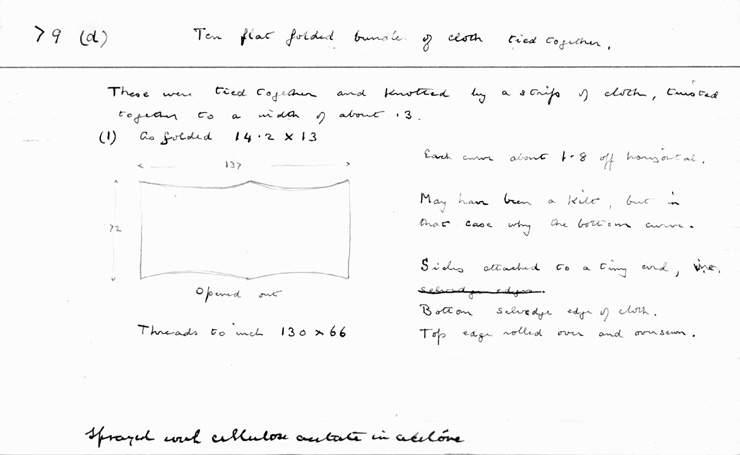 79 (d) Ten flat folded bundle of cloth tied together.
These were tied together and knotted by a strip of cloth, twisted
together to a width of about .3.
(1) As folded 14.2 x 13
137
72
Opened out
Threads to inch 130 x 66
Each curve about 1.8 off horizontal.
May have been a kilt, but in
that case why the bottom curve.
Sides attached to a tiny cord,
selvedge edges.
Bottom selvedge edge of cloth.
Top edge rolled over and oversewn.
Sprayed with cellulose acetate in acetone